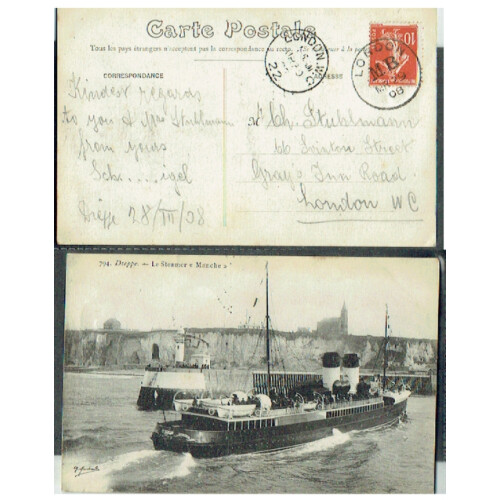 Carte Postale
Tous les pays étrangers n'acceptent pas la correspondance au recto.
CORRESPONDANCE
LONDON. W.C.
22
LONDON
M.B.
08
10
Kindest regards
to you & Mrs Stuhlmann
from yours
Sch.....igel
Dieppe 28/III/08
Mr Ch. Stuhlmann
66 Swinton Street
Gray's Inn Road
London WC
794. Dieppe. — Le Steamer « Manche »